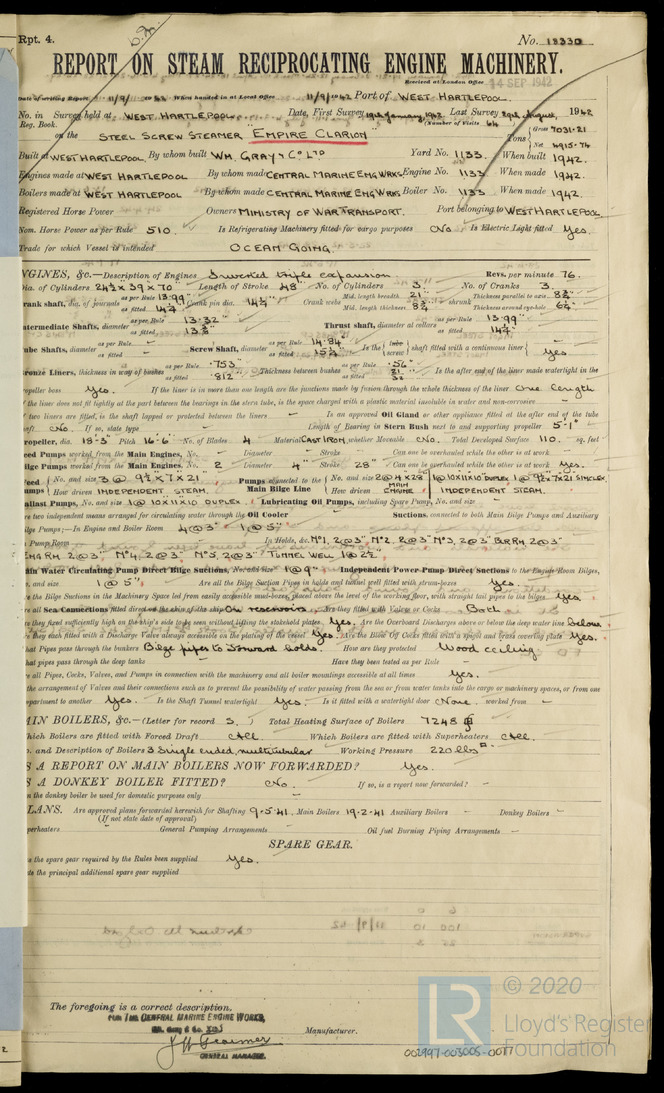 Rpt. 4.
No. 18330
REPORT ON STEAM RECIPROCATING ENGINE MACHINERY.
Received at London Office 14 SEP 1942
Date of writing Report 11/9/ 19 42 When handed in at Local Office 11/9/1942 Port of WEST HARTLEPOOL.
No. in Survey held at WEST HARTLEPOOL. Date, First Survey 19th January, 1942 Last Survey 29th August, 1942
Reg. Book. (Number of Visits 64
on the STEEL SCREW STEAMER "EMPIRE CLARION" Tons Gross 7031.21
Net 4915.74
Built at WEST HARTLEPOOL By whom built WM. GRAY & CO LTD Yard No. 1133. When built 1942.
Engines made at WEST HARTLEPOOL By whom made CENTRAL MARINE ENG WRKS. Engine No. 1133 When made 1942.
Boilers made at WEST HARTLEPOOL By whom made CENTRAL MARINE ENG WRKS. Boiler No. 1133 When made 1942.
Registered Horse Power Owners MINISTRY OF WAR TRANSPORT. Port belonging to WEST HARTLEPOOL
Nom. Horse Power as per Rule 510. Is Refrigerating Machinery fitted for cargo purposes No. Is Electric Light fitted Yes.
Trade for which Vessel is intended OCEAN GOING.
NGINES, &c.—Description of Engines Inverted triple expansion. Revs. per minute 76.
Dia. of Cylinders 24½ x 39 x 70" Length of Stroke 48" No. of Cylinders 3. No. of Cranks 3.
rank shaft, dia. of journals as per Rule 13.99 as fitted 14¼ Crank pin dia. 14¼ Crank webs Mid. length breadth 21" Mid. length thickness 8¾" shrunk Thickness parallel to axis 8¾" Thickness around eye-hole 6¼"
termediate Shafts, diameter as per Rule 13.32 as fitted 13⅜ Thrust shaft, diameter at collars as per Rule 13.99 as fitted 14¼
ube Shafts, diameter as per Rule - as fitted - Screw Shaft, diameter as per Rule 14.84 as fitted 15¼ Is the tube screw shaft fitted with a continuous liner Yes
ronze Liners, thickness in way of bushes as per Rule .753 as fitted .812 Thickness between bushes as per Rule .56 as fitted 21/32 Is the after end of the liner made watertight in the
ropeller boss Yes. If the liner is in more than one length are the junctions made by fusion through the whole thickness of the liner One length
the liner does not fit tightly at the part between the bearings in the stern tube, is the space charged with a plastic material insoluble in water and non-corrosive -
two liners are fitted, is the shaft lapped or protected between the liners - Is an approved Oil Gland or other appliance fitted at the after end of the tube
aft No. If so, state type - Length of Bearing in Stern Bush next to and supporting propeller 5'-1"
ropeller, dia. 18'-3" Pitch 16'-6" No. of Blades 4 Material CAST IRON, whether Moveable No. Total Developed Surface 110. sq. feet
eed Pumps worked from the Main Engines, No. - Diameter - Stroke - Can one be overhauled while the other is at work -
ilge Pumps worked from the Main Engines, No. 2 Diameter 4" Stroke 28" Can one be overhauled while the other is at work Yes.
eed umps No. and size 3 @ 9½ x 7 x 21" Pumps connected to the Main Bilge Line No. and size 2 @ 4 x 28" 1 @ 10 x 11 x 10 DUPLEX 1 @ 9½ x 7 x 21 SIMPLEX.
How driven INDEPENDENT STEAM. How driven MAIN ENGINE INDEPENDENT STEAM.
allast Pumps, No. and size 1 @ 10 x 11 x 10 DUPLEX Lubricating Oil Pumps, including Spare Pump, No. and size -
re two independent means arranged for circulating water through the Oil Cooler - Suctions, connected to both Main Bilge Pumps and Auxiliary
ilge Pumps;—In Engine and Boiler Room 4 @ 3" 1 @ 5"
Pump Room - In Holds, &c. No 1, 2 @ 3" No 2, 2 @ 3" No 3, 2 @ 3" BLR RM, 2 @ 3"
ENG RM, 2 @ 3" No 4, 2 @ 3" No 5, 2 @ 3" TUNNEL WELL 1 @ 2½
ain Water Circulating Pump Direct Bilge Suctions, No. and size 1 @ 9" Independent Power Pump Direct Suctions to the Engine Room Bilges,
o. and size 1 @ 5". Are all the Bilge Suction Pipes in holds and tunnel well fitted with strum-boxes Yes.
re the Bilge Suctions in the Machinery Space led from easily accessible mud-boxes, placed above the level of the working floor, with straight tail pipes to the bilges Yes.
re all Sea Connections fitted direct on the skin of the ship On reservoirs. Are they fitted with Valves or Cocks Both
re they fixed sufficiently high on the ship's side to be seen without lifting the stokehold plates Yes. Are the Overboard Discharges above or below the deep water line below
re they each fitted with a Discharge Valve always accessible on the plating of the vessel Yes. Are the Blow Off Cocks fitted with a spigot and brass covering plate Yes.
hat Pipes pass through the bunkers Bilge pipes to forward holds. How are they protected Wood ceiling
hat pipes pass through the deep tanks - Have they been tested as per Rule -
re all Pipes, Cocks, Valves, and Pumps in connection with the machinery and all boiler mountings accessible at all times Yes.
the arrangement of Valves and their connections such as to prevent the possibility of water passing from the sea or from water tanks into the cargo or machinery spaces, or from one
epartment to another Yes. Is the Shaft Tunnel watertight Yes. Is it fitted with a watertight door None. worked from -
AIN BOILERS, &c.—(Letter for record S. Total Heating Surface of Boilers 7248
hich Boilers are fitted with Forced Draft All. Which Boilers are fitted with Superheaters All.
o. and Description of Boilers 3 Single ended, multitubular Working Pressure 220 lbs
S A REPORT ON MAIN BOILERS NOW FORWARDED? Yes.
S A DONKEY BOILER FITTED? No. If so, is a report now forwarded? -
the donkey boiler be used for domestic purposes only -
LANS. Are approved plans forwarded herewith for Shafting 9.5.41. Main Boilers 19.2.41 Auxiliary Boilers - Donkey Boilers -
(If not state date of approval)
uperheaters - General Pumping Arrangements - Oil fuel Burning Piping Arrangements -
SPARE GEAR.
s the spare gear required by the Rules been supplied Yes.
ate the principal additional spare gear supplied
The foregoing is a correct description,
FOR THE CENTRAL MARINE ENGINE WORKS,
Manufacturer.
GENERAL MANAGER.
002997-003005-0077
LR © 2020
Lloyd's Register
Foundation